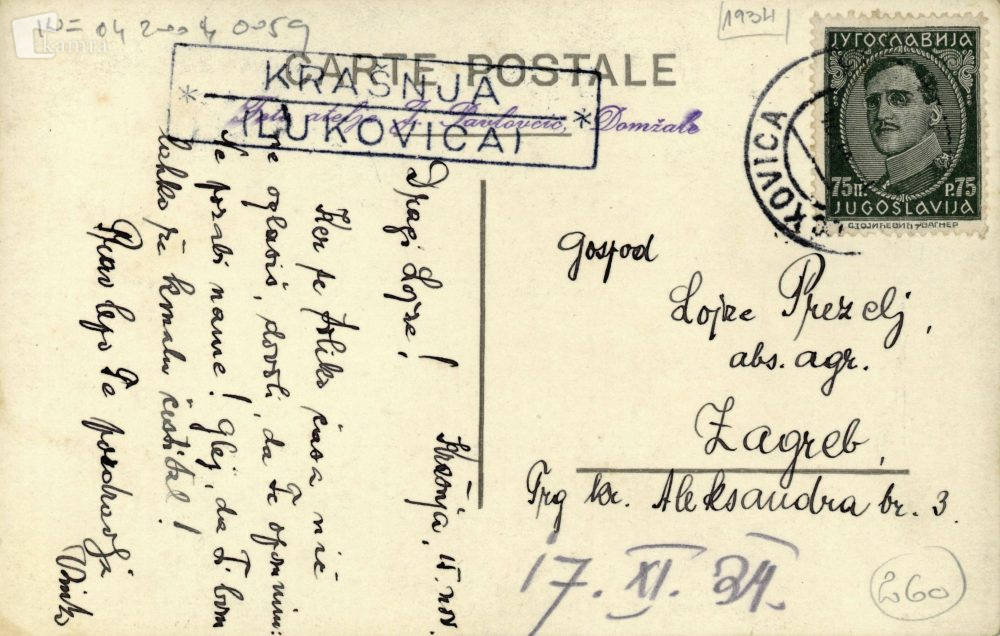 KU= 04 2004 0059
kamra
[1934]
CARTE POSTALE
KRAŠNJA
* *
(LUKOVICA)
Foto atelje J. Pavlovčič, Domžale
ЈУГОСЛАВИЈА
75П. P.75
JUGOSLAVIJA
СТОЈИЋЕВИЋ ВАГНЕР
LUKOVICA
Krašnja, 15. nov.
Dragi Lojze!
Ker se toliko časa nič
ne oglasiš, dovoli, da Te opomnim:
Ne pozabi name! Glej, da Ti bom
lahko že kmalu čestital!
Prav lepo Te pozdravlja
Gospod
Lojze Prezelj,
abs. agr.
Zagreb,
Trg kr. Aleksandra br. 3.
17. XI. 34.
260